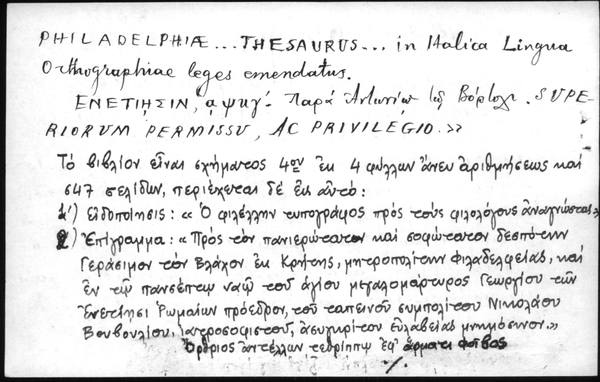 PHILADELPHIÆ... THESAURUS... in Italica Lingua
Orthographiae leges emendatus.
ΕΝΕΤΙῌΣΙΝ, ͵αψκγʹ. Παρὰ Ἀντωνίῳ τῷ Βόρτολι. SUPE-
RIORUM PERMISSU, AC PRIVILEGIO.»
Τὸ βιβλίον εἶναι σχήματος 4ον ἐκ 4 φύλλων ἄνευ ἀριθμήσεως καὶ
647 σελίδων, περιέχεται δὲ εἰς αὐτό:
1) Εἰδοποίησις: «Ὁ φιλέλλην τυπογράφος πρὸς τοὺς φιλολόγους ἀναγνώστας»
2) Ἐπίγραμμα: «Πρὸς τὸν πανιερώτατον καὶ σοφώτατον δεσπότην
Γεράσιμον τὸν Βλάχον ἐκ Κρήτης, μητροπολίτην Φιλαδελφείας, καὶ
ἐν τῷ πανσέπτῳ ναῷ τοῦ ἁγίου μεγαλομάρτυρος Γεωργίου τῶν
Ἐνετίῃσι Ῥωμαίων πρόεδρον, τοῦ ταπεινοῦ συμπολίτου Νικολάου
Βουβουλίου, ἰατροσοφιστοῦ, ἀσυγκρίτου εὐλαβείας μνημόσυνον.»
Ὄρθριος ἀντέλλων τεθρίππῳ ἐφ' ἅρματι Φοῖβος
./.